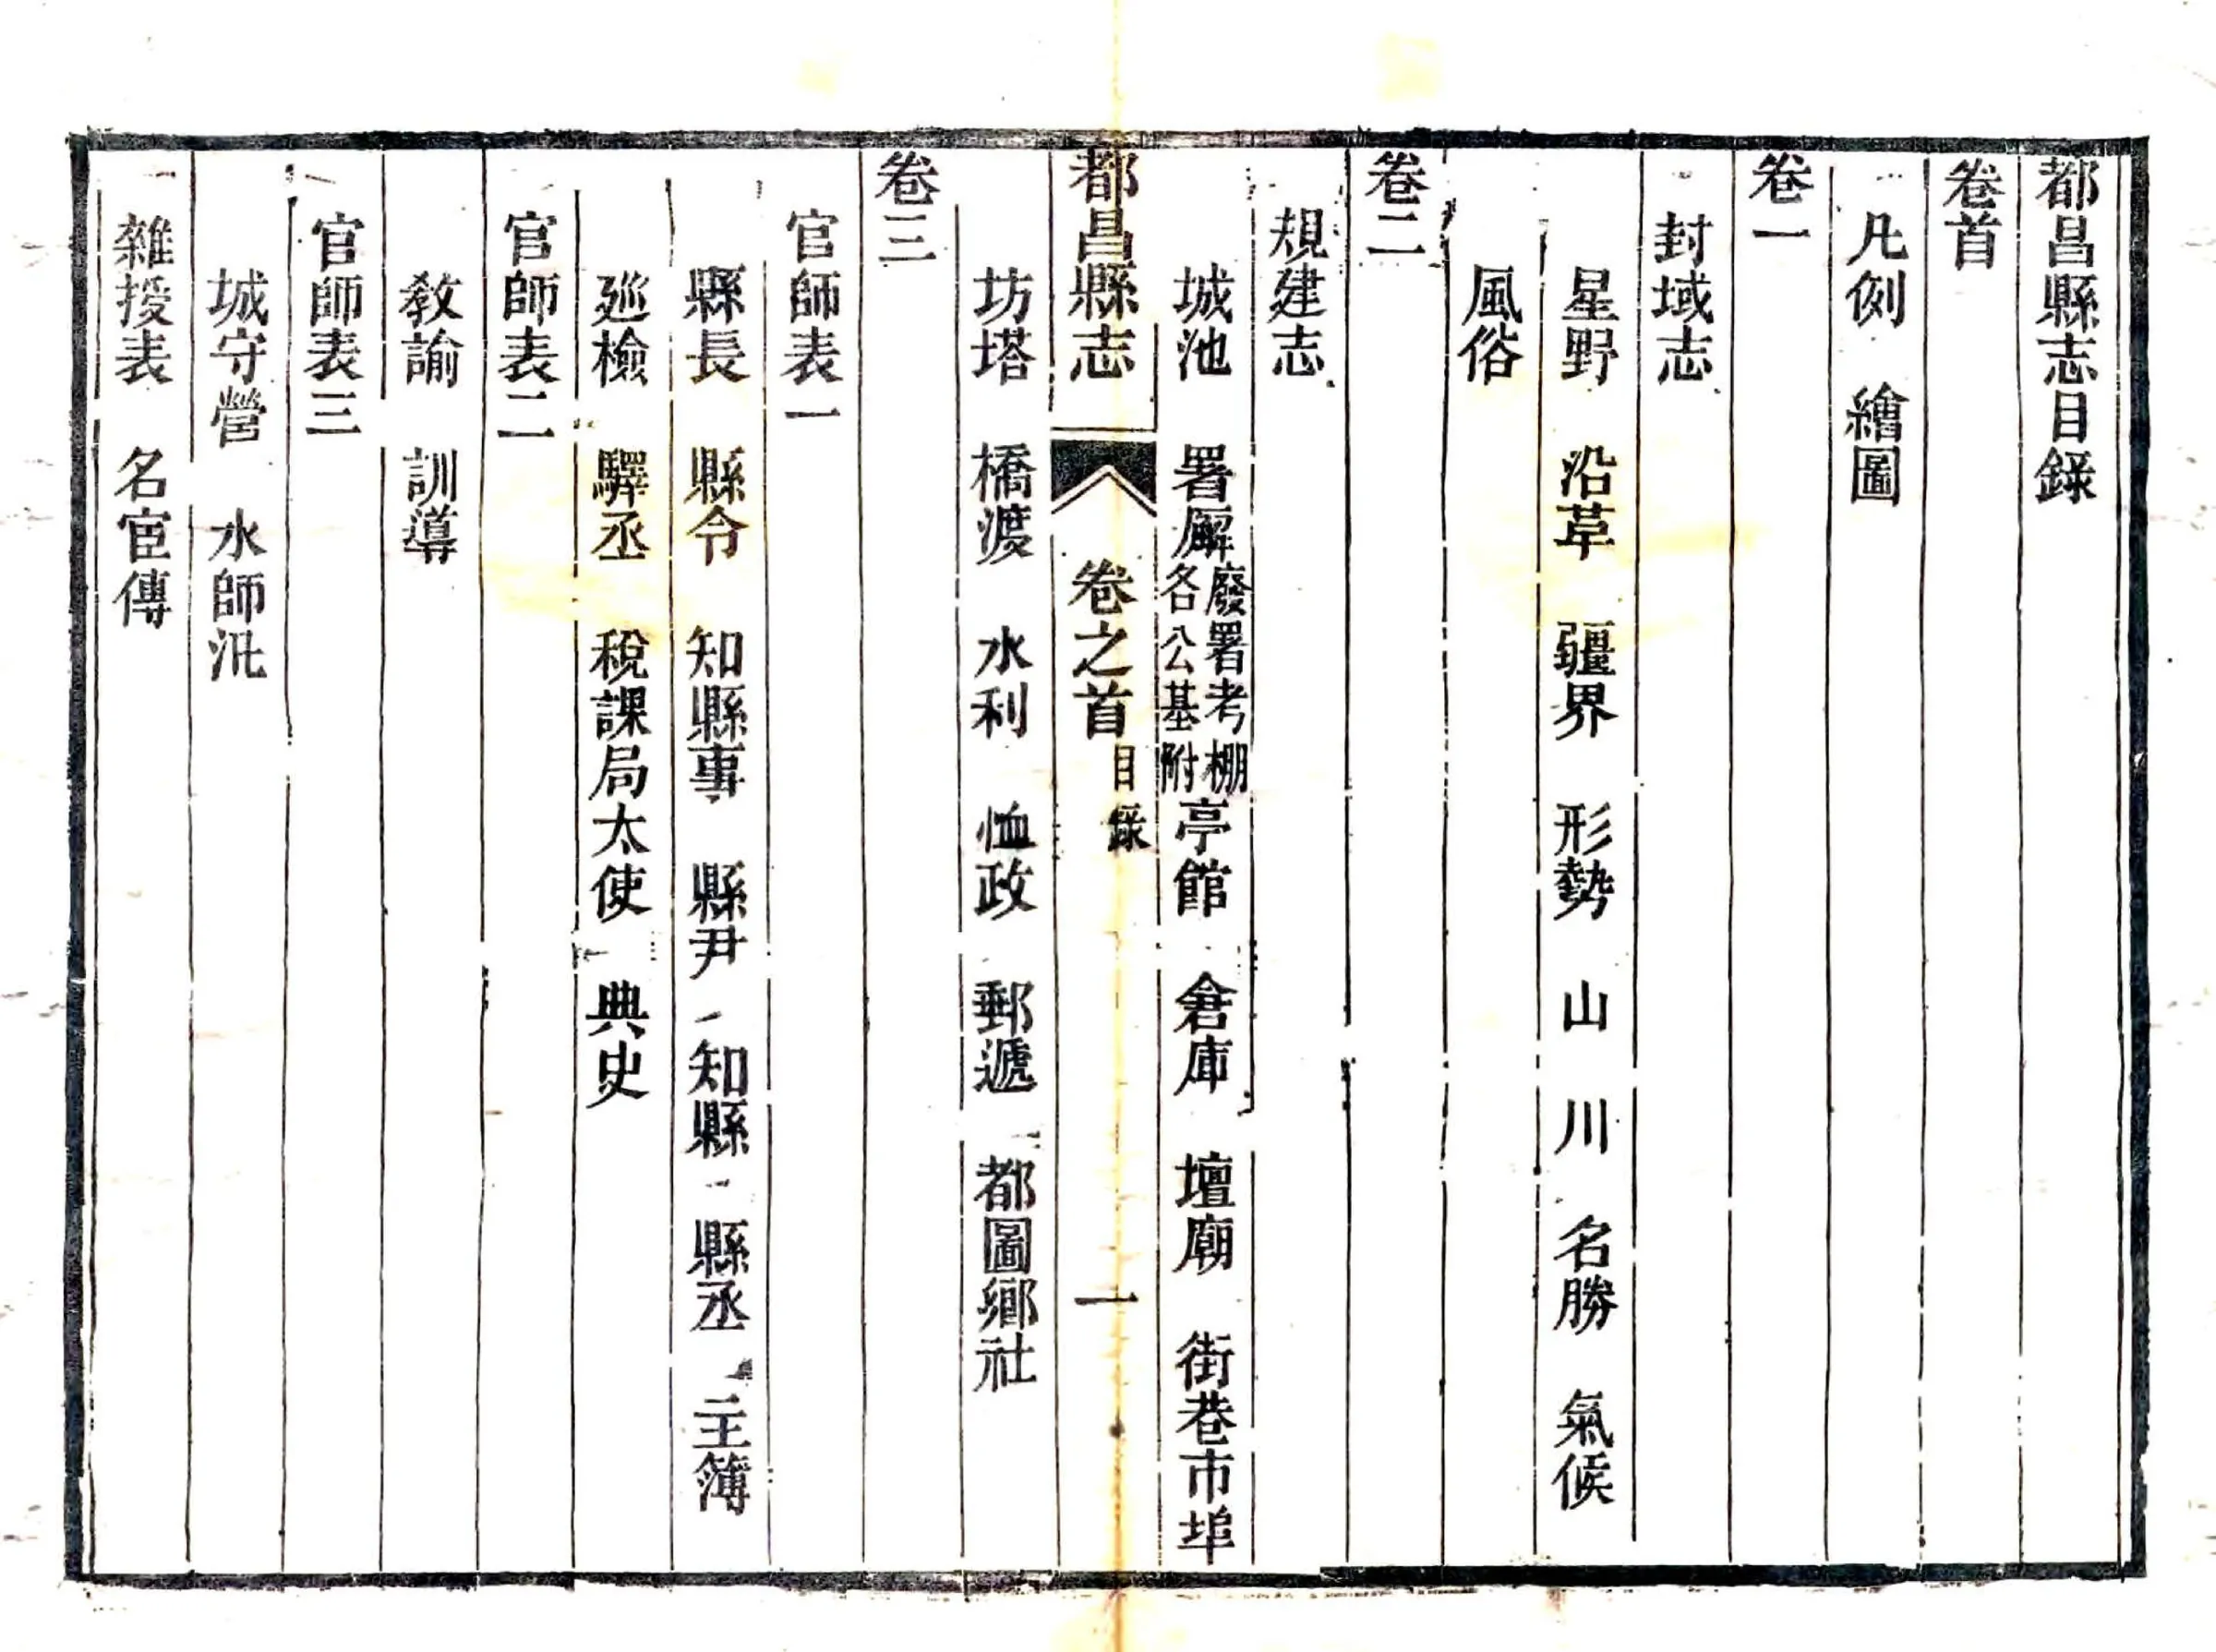 都昌縣志目錄
卷首
凡例 繪圖
卷一
封域志
星野 沿革 疆界 形勢 山川 名勝 氣候
風俗
卷二
規建志
城池 署廨 廢署考棚各公基附 亭館 倉庫 壇廟 街巷市埠
都昌縣志 卷之首 目錄 一
坊塔 橋渡 水利 恤政 郵遞 都圖鄉社
卷三
官師表一
縣長 縣令 知縣事 縣尹 知縣 縣丞 主簿
廵檢 驛丞 稅課局太使 典史
官師表二
教諭 訓導
官師表三
城守營 水師汛
雜授表 名宦傳